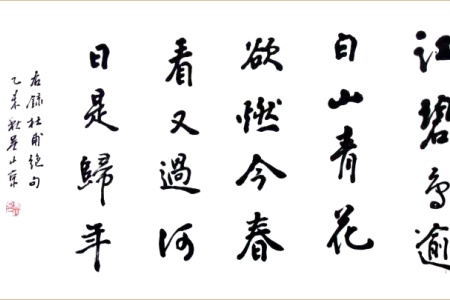 江碧鳥逾
白山青花
欲燃今春
看又過何
日是歸年
右錄杜甫絕句
乙未秋